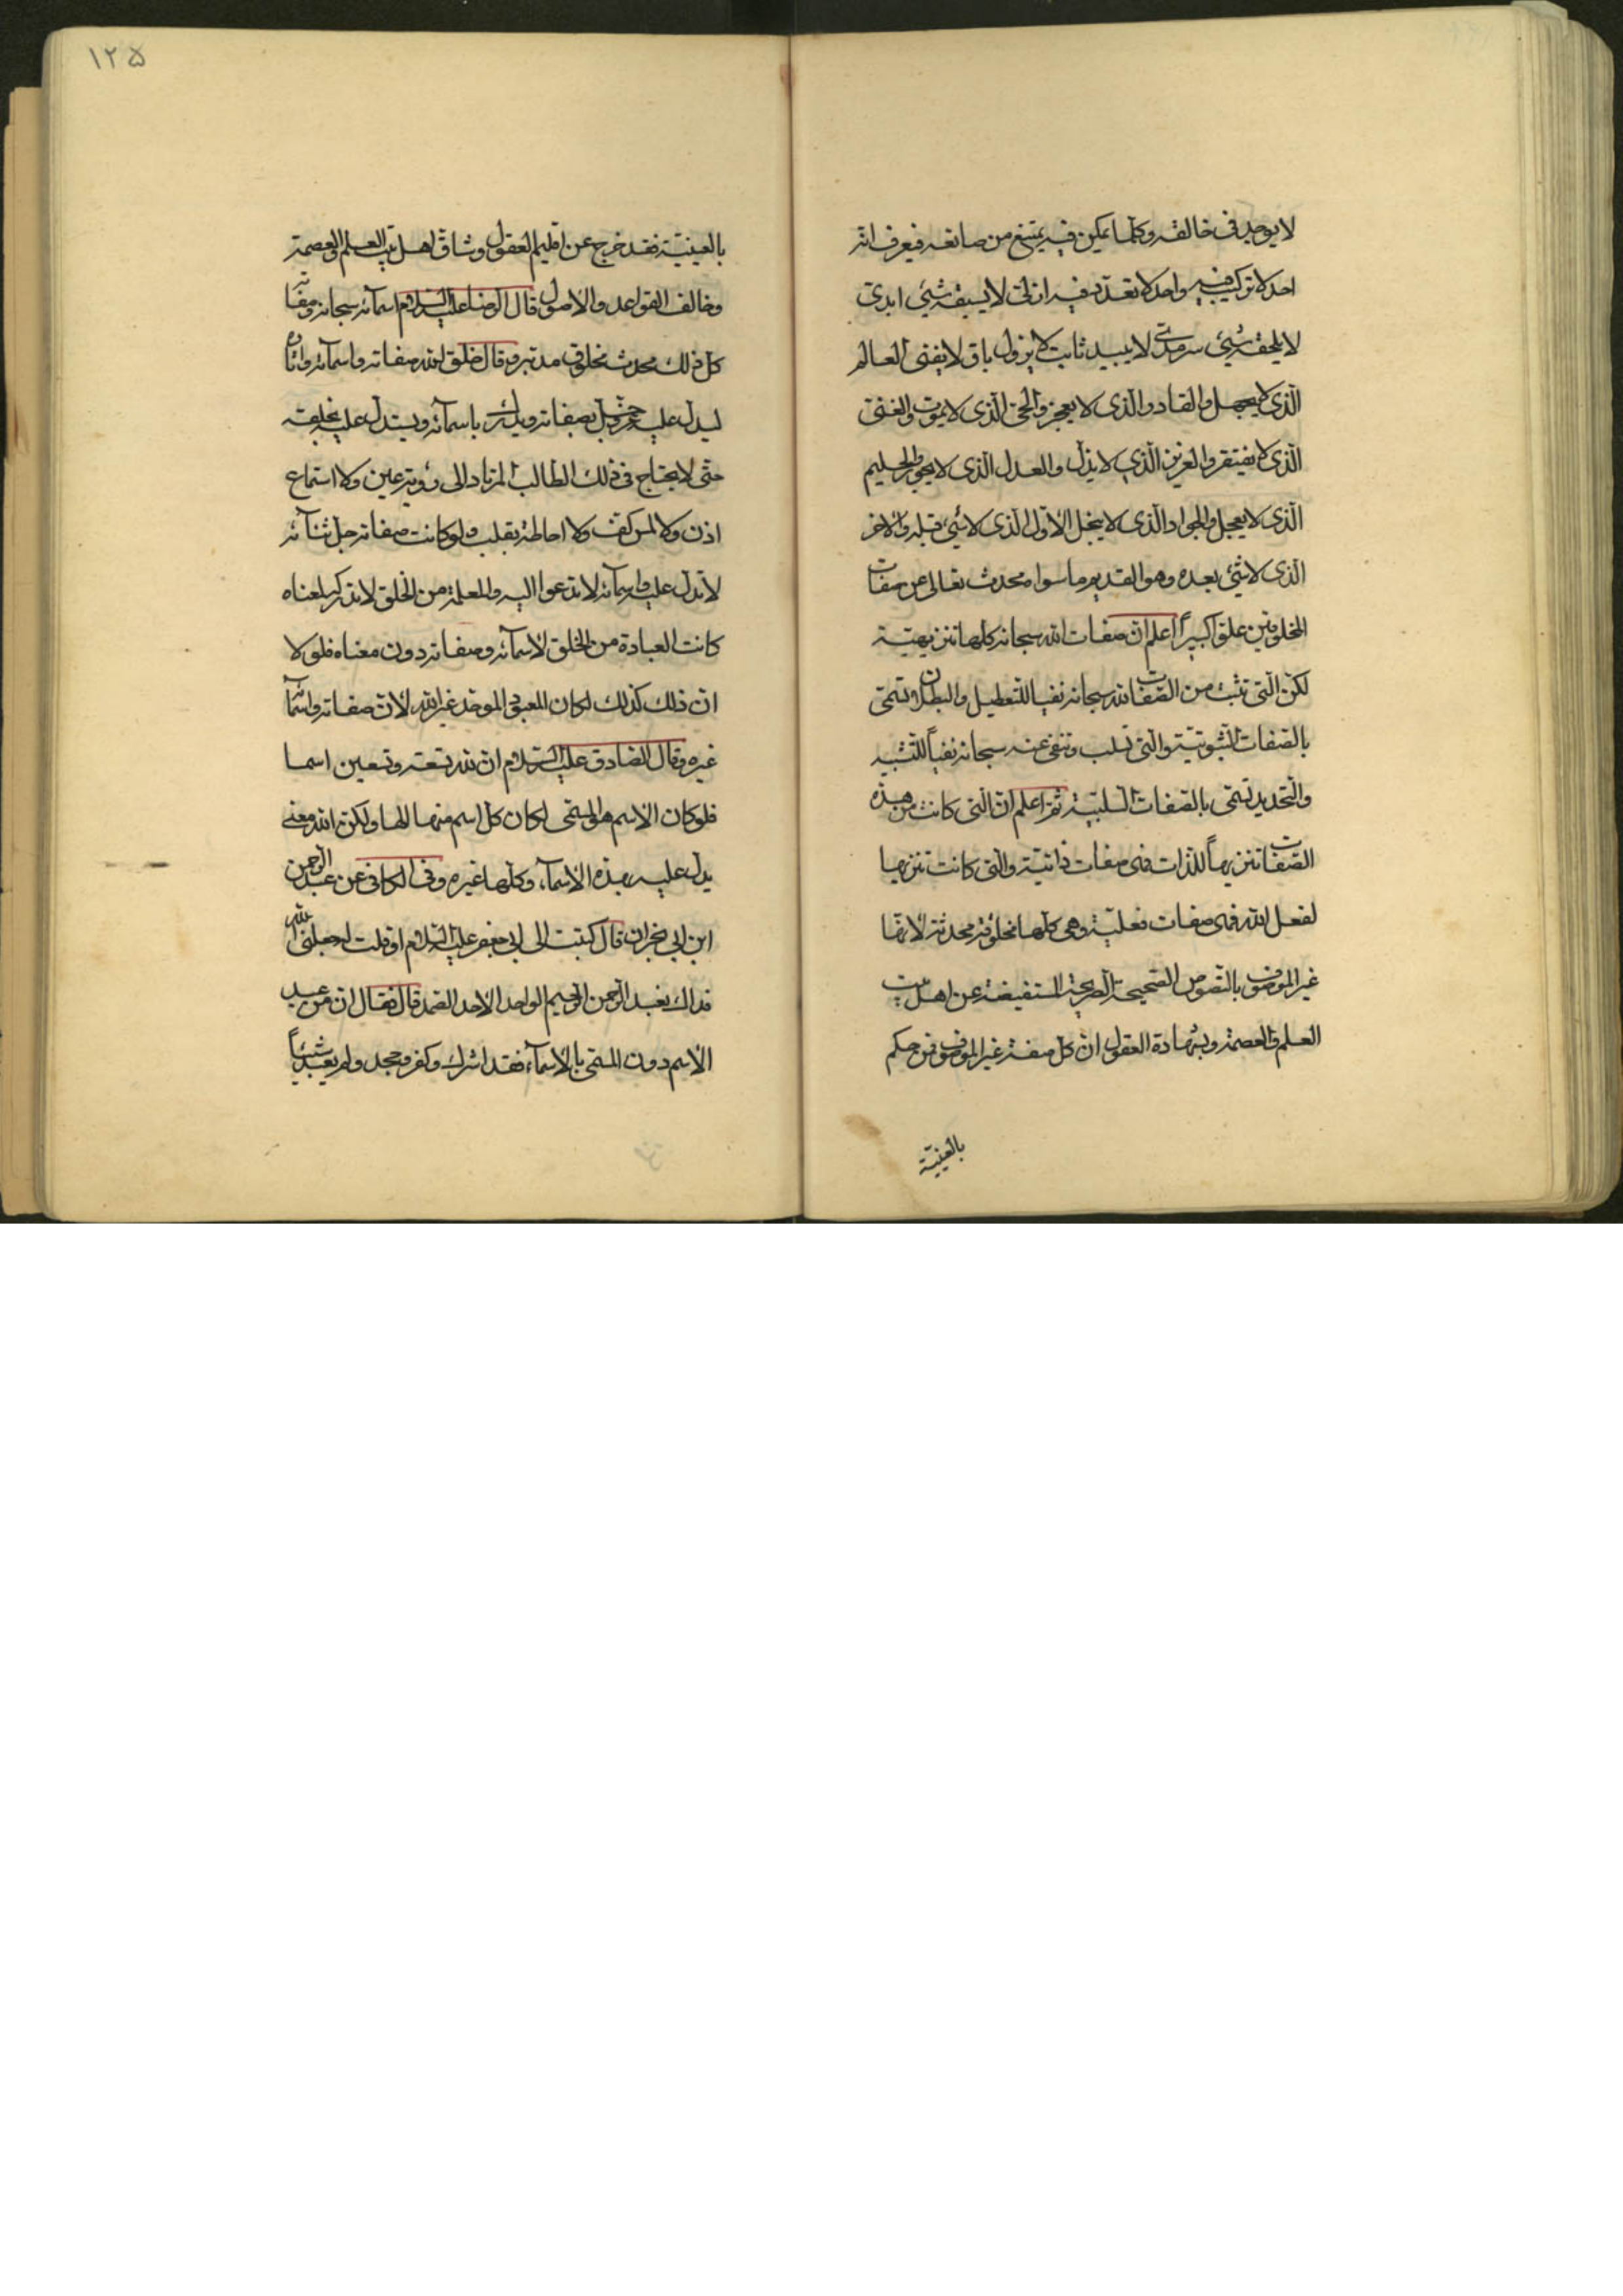 لا يوجد في خالقه وكلما يمكن فيه يمتنع من صانعه فيعرف انه
احد لا تركيب فيه واحد لا تعدد فيه ازلي لا يسبقه شيئ ابدي
لا يلحقه شيئ سرمدي لا يبيد ثابت لا يزول باق لا يفنى العالم
الذي لا يجهل والقادر الذي لا يعجز والحي الذي لا يموت والغني
الذي لا يفتقر والعزيز الذي لا يذل والعدل الذي لا يجور والحليم
الذي لا يعجل والجواد الذي لا يبخل الاول الذي لا شيئ قبله والاخر
الذي لا شيئ بعده وهو القديم وما سواه محدث تعالى عن صفات
المخلوقين علوا كبيراً اعلم ان صفات الله سبحانه كلها تنزيهية
لكن التي تثبت من الصفات لله سبحانه نفيا للتعطيل والبطلان تسمى
بالصفات الثبوتية والتي تسلب وتنفى عنه سبحانه نفياً للتشبيه
والتحديد تسمى بالصفات السلبية ثم اعلم ان التي كانت من هذه
الصفات تنزيهاً للذات فهى صفات ذاتية والتي كانت تنزيها
لفعل الله فهى صفات فعلية وهي كلها مخلوقة محدثة لانها
غير الموصوف بالنصوص الصحيحة الصريحة المستفيضة عن اهل بيت
العلم والعصمة وبشهادة العقول ان كل صفة غير الموصوف فمن حكم
بالعينية
١٢٥
بالعينية فقد خرج عن اقليم العقول وشاق اهل بيت العلم والعصمة
وخالف القواعد والاصول قال الرضا عليه السلام اسمائه سبحانه وصفاته
كل ذلك محدث مخلوق مدبر وقال خلق لله صفاته واسمائه
ليدل عليه عز وجل بصفاته ويدرك باسمائه ويستدل عليه بخلقه
حتى لا يحتاج في ذلك الطالب المرتاد الى رؤية عين ولا استماع
اذن ولا لمس كف ولا احاطة بقلب ولو كانت صفاته جل ثنائه
لا تدل عليه واسمائه لا تدعوا اليه والمعلمة من الخلق لا تدركه لمعناه
كانت العبادة من الخلق لاسمائه وصفاته دون معناه فلولا
ان ذلك كذلك لكان المعبود الموحد غير الله لان صفاته واسمائه
غيره وقال الصادق عليه السلام ان لله تسعة وتسعين اسما
فلو كان الاسم هو المسمى لكان كل اسم منها الها ولكن الله معنى
يدل عليه بهذه الاسماء وكلها غيره وفي الكافي عن عبد الرحمن
ابن ابي نجران قال كتبت الى ابي جعفر عليه السلام او قلت له جعلني الله
فداك نعبد الرحمن الرحيم الواحد الاحد الصمد قال فقال ان من عبد
الاسم دون المسمى بالاسماء فقد اشرك وكفر وجحد ولم يعبد شيئاً